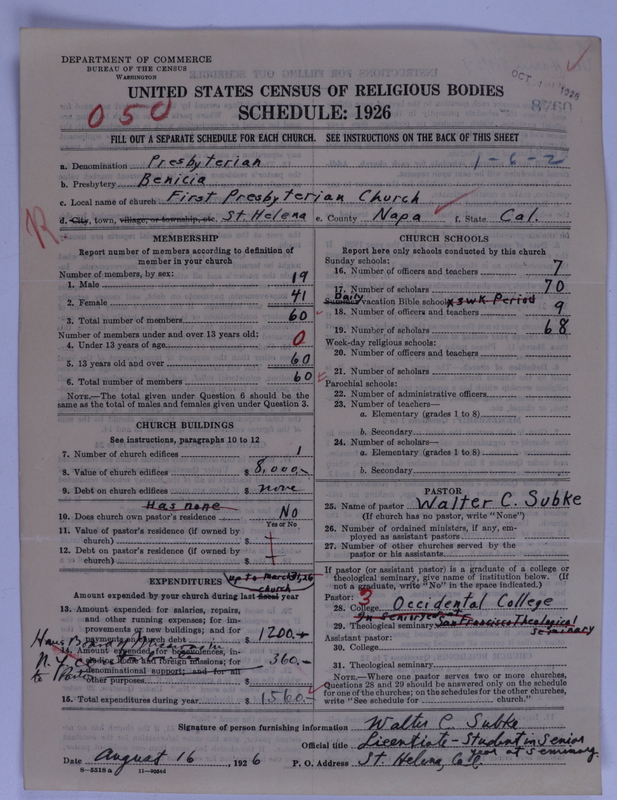 DEPARTMENT OF COMMERCE
BUREAU OF THE CENSUS
WASHINGTON
OCT 1926
050
UNITED STATES CENSUS OF RELIGIOUS BODIES
SCHEDULE: 1926
FILL OUT A SEPARATE SCHEDULE FOR EACH CHURCH. SEE INSTRUCTIONS ON THE BACK OF THIS SHEET
a. Denomination Presbyterian 1-6-2
b. Presbytery Benicia
c. Local name of church First Presbyterian Church
R
d. City, town, village, or township, etc. St. Helena e. County Napa f. State Cal.
MEMBERSHIP
Report number of members according to definition of
member in your church
Number of members, by sex:
1. Male 19
2. Female 41
3. Total number of members 60
Number of members under and over 13 years old:
4. Under 13 years of age 0
5. 13 years old and over 60
6. Total number of members 60
NOTE.—The total given under Question 6 should be the
same as the total of males and females given under Question 3.
CHURCH BUILDINGS
See instructions, paragraphs 10 to 12
7. Number of church edifices 1
8. Value of church edifices $ 8,000.-
9. Debt on church edifices $ none
Has none
10. Does church own pastor's residence No
Yes or No
11. Value of pastor's residence (if owned by
church) $
12. Debt on pastor's residence (if owned by
church) $
EXPENDITURES up to March 31, 26
church
Amount expended by your church during last fiscal year
13. Amount expended for salaries, repairs,
and other running expenses; for im-
provements or new buildings; and for
payments on church debt $ 1200.-
14. Amount expended for benevolences, in-
cluding home and foreign missions; for
denominational support; and for all
other purposes $ 360.-
15. Total expenditures during year $ 1560.-
CHURCH SCHOOLS
Report here only schools conducted by this church
Sunday schools:
16. Number of officers and teachers 7
17. Number of scholars 70
Summer Daily vacation Bible schools x 3 wk Period
18. Number of officers and teachers 9
19. Number of scholars 68
Week-day religious schools:
20. Number of officers and teachers
21. Number of scholars
Parochial schools:
22. Number of administrative officers
23. Number of teachers—
a. Elementary (grades 1 to 8)
b. Secondary
24. Number of scholars—
a. Elementary (grades 1 to 8)
b. Secondary
PASTOR
25. Name of pastor Walter C. Subke
(If church has no pastor, write "None")
26. Number of ordained ministers, if any, em-
ployed as assistant pastors
27. Number of other churches served by the
pastor or his assistants
If pastor (or assistant pastor) is a graduate of a college or
theological seminary, give name of institution below. (If
not a graduate, write "No" in the space indicated.)
Pastor: 3
28. College Occidental College
29. Theological seminary San Francisco Theological
Seminary
Assistant pastor:
30. College
31. Theological seminary
NOTE.—Where one pastor serves two or more churches,
Questions 28 and 29 should be answered only on the schedule
for one of the churches; on the schedules for the other churches,
write "See schedule for church."
Signature of person furnishing information Walter C. Subke
Official title Licentiate - Student in Senior
year at Seminary.
Date August 16, 1926 P. O. Address St. Helena, Cal.
8—5518a 11—9264d